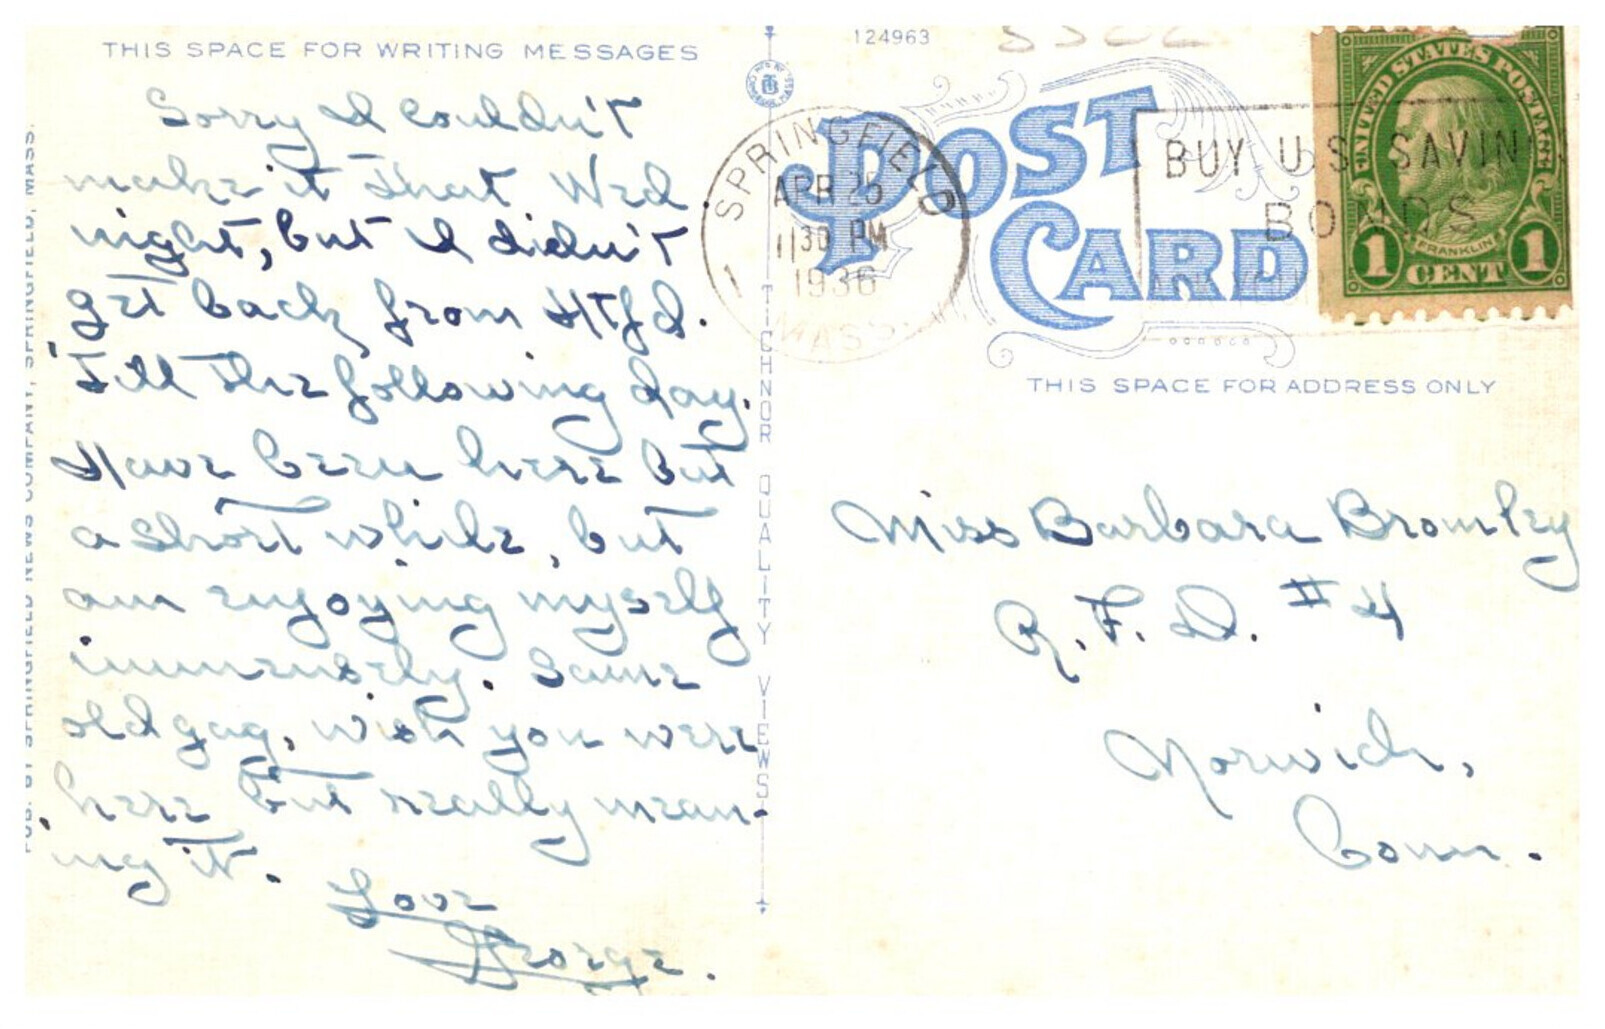 THIS SPACE FOR WRITING MESSAGES
Sorry I couldn't
make it that Wed
night, but I didn't
get back from Htfd.
'Till the following day.
Have been here but
a short while, but
am enjoying myself
immensely. Same
old gag, wish you were
here but really mean-
ing it.
Love
George.
PUB. BY SPRINGFIELD NEWS COMPANY, SPRINGFIELD, MASS.
TICHNOR QUALITY VIEWS
124963
POST
CARD
SPRINGFIELD
APR 25
11 30 PM
1936
MASS.
1
BUY U.S. SAVIN
BONDS
UNITED STATES POSTAGE
FRANKLIN
1 CENT 1
THIS SPACE FOR ADDRESS ONLY
Miss Barbara Bromley
R.F.D. #4
Norwich,
Conn.